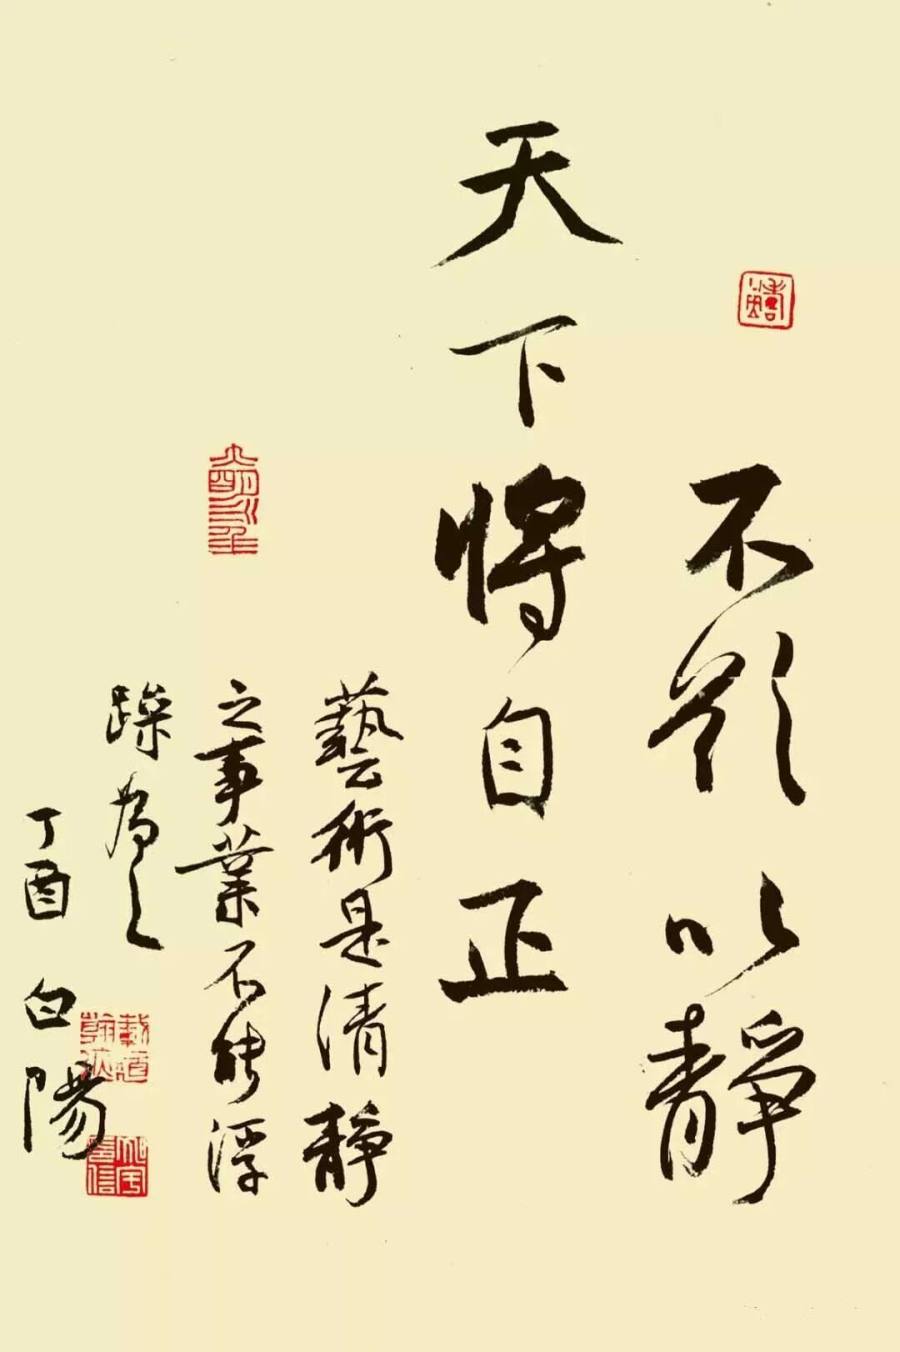 不欲以靜
天下將自正
藝術是清靜
之事業不能浮
躁為之
丁酉 白陽